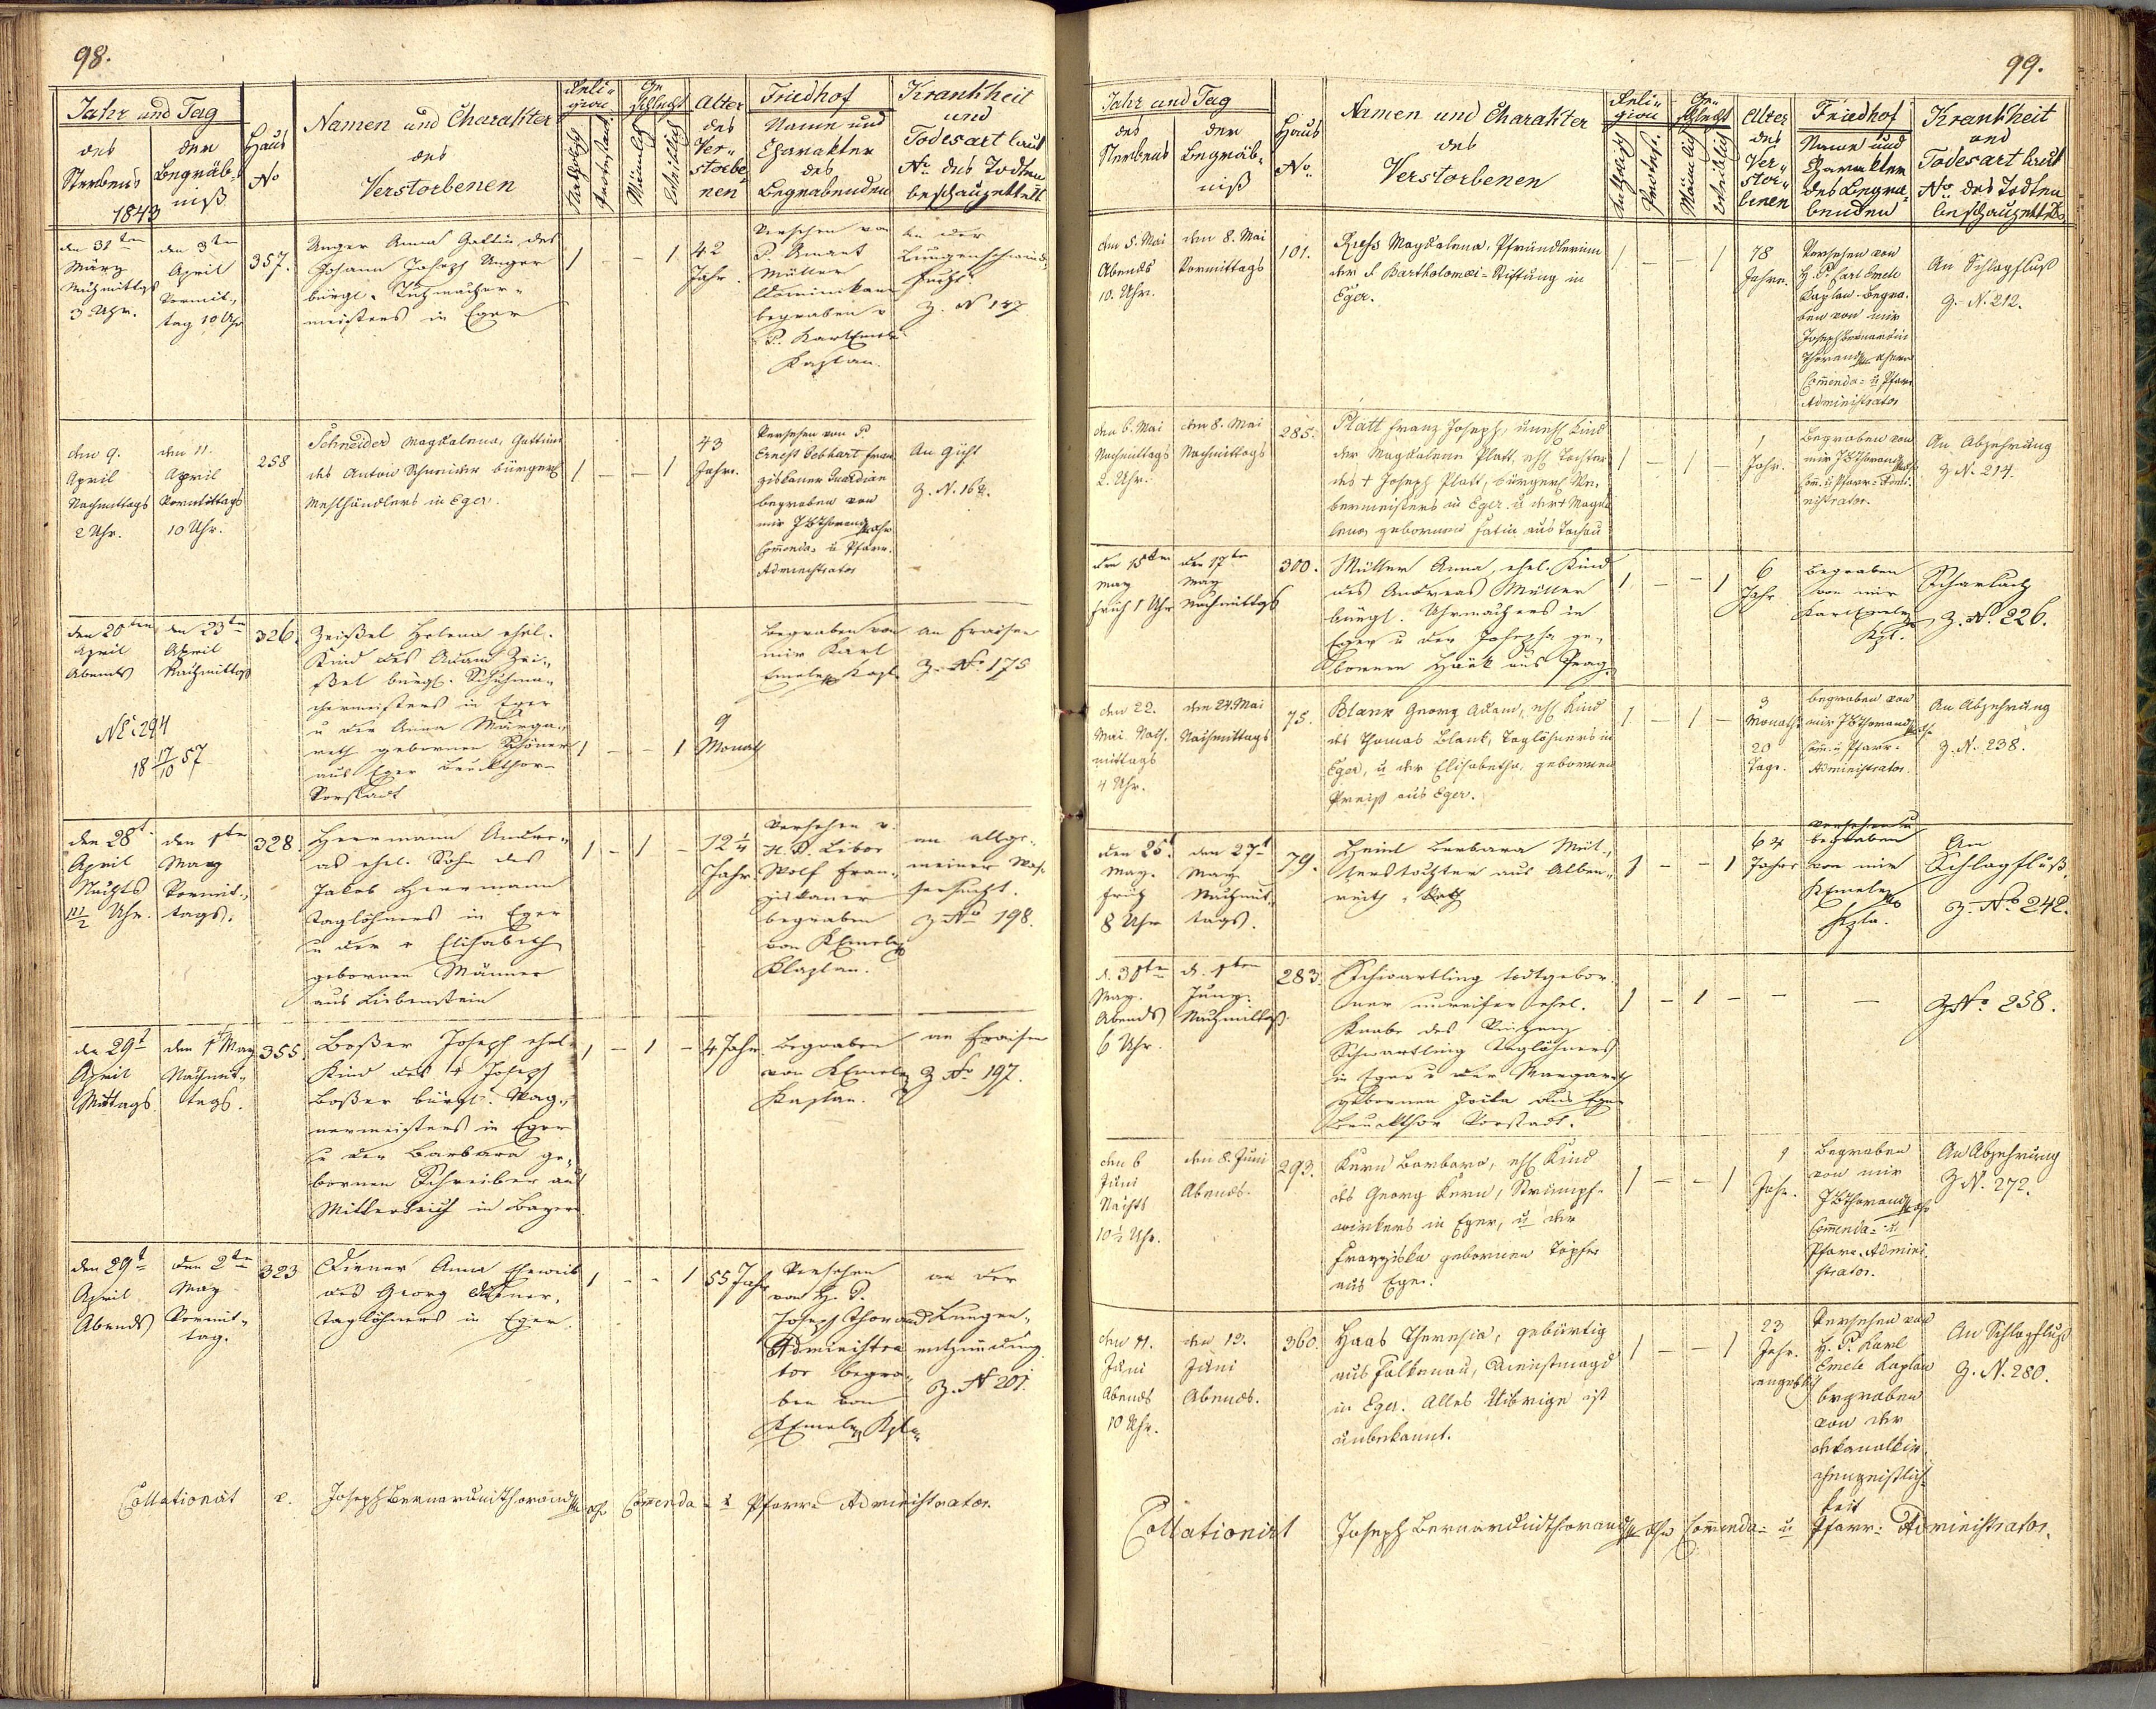 98.
Jahr und Tag
des Sterbens
der Begräbniß
Haus No
Namen und Charakter
des
Verstorbenen
Religion
Katholisch
Protestant.
Geschlecht
Männlich
Weiblich
Alter
des
Ver-
storbe-
nen
Friedhof
Name und
Charakter
des
Begrabenden
Krankheit
und
Todesart laut
No. des Todten
beschauzettels
1843
den 31ten
März
Nachmittags
3 Uhr.
den 3ten
April
Vormit-
tag 10 Uhr
357.
Unger Anna Gattin des
Johann Joseph Unger
bürgl.
meisters in Eger
1 - - 1
42
Jahr.
Versehen von
P. Amant
Müller
Dominikaner
begraben v
P. Karl Emele
Kaplan.
An der
Lungenschwind-
sucht.
Z. N 147
den 9.
April
Nachmittags
2 Uhr.
den 11.
April
Vormittags
10 Uhr.
258
Schneider Magdalena, Gattin
des Anton Schneider bürgerl
Mehlhändlers in Eger.
1 - - 1
43
Jahr.
Versehen von P.
Ernest Gebhart Fran-
ziskaner Guardian
begraben von
mir J B Thorand
Commenda- u Pfarr-
Administrator
An Gicht
Z. N. 162.
den 20ten
April
Abends
den 23ten
April
Nachmittags
326.
Zeißel Helena ehel.
Kind des Adam Zei-
ßel bürgl. Schuhma-
chermeisters in Eger
u der Anna Marga-
reth gebornen Schöner
aus Eger Bruckthor-
Vorstadt
No: 294
18 17/10 57
1 - - 1
9
Monath
begraben von
mir Karl
Emele Kapl.
an Fraisen
Z. No 175
den 28t
April
Nachts
11 1/2 Uhr.
den 1ten
May
Vormit-
tags.
328.
Herrmann Andre-
as ehel. Sohn des
Jakob Herrmann
Taglöhners in Eger
u der + Elisabeth
gebornen Männer
aus Liebenstein
1 - 1 -
12
Jahr
Versehen v.
H. P. Libor
Wolf Fran-
ziskaner
begraben
von KEmele
Kaplan.
an allge-
meiner Was-
sersucht.
Z No 198.
den 29t
April
Mittags.
den 1t May
Nachmit-
tags.
355.
Boßer Joseph ehel
Kind des + Joseph
Boßer bürgl. Wag-
nermeisters in Eger
u der Barbara ge-
bornen Schreiber aus
Mitterteich in Bayern
1 - 1 -
4 Jahr.
begraben
von KEmele
Kaplan.
an Fraisen
Z No 197.
den 29t
April
Abends
den 2ten
May
Vormit-
tag.
323
Diener Anna Eheweib
des Georg Diener,
Taglöhners in Eger.
1 - - 1
55 Jahr
Versehen
von H. P.
Joseph Thorand
Administra
tor begra-
ben von
KEmele Kpl.
an der
Lungen-
entzündung.
Z. N 201.
Collationirt Joseph Bernardin Thorand Commenda- u Pfarr-Administrator.
99.
Jahr und Tag
des
Sterbens
der
Begräb-
niß
Haus
No.
Namen und Charakter
des
Verstorbenen
Religion
Katholisch
Protest.
Geschlecht
Männlich
Weiblich
Alter
des
Ver-
stor-
benen
Friedhof
Name und
Charakter
des Begra-
benden
Krankheit
und
Todesart laut
No. des Todten
beschauzettels
den 5. Mai
Abends
10. Uhr.
den 8. Mai
Vormittags
101.
Rieß Magdalena, Pfründlerinn
der S. Bartholomæi-Stiftung in
Eger.
1 - - 1
78
Jahre.
Versehen von
H. P. Carl Emele
Kaplan. Begra-
ben von mir
Joseph Bernardin
Thorand
Commenda- u Pfarr
Administrator
An Schlagfluß
Z. N. 212.
den 6. Mai
Nachmittags
2. Uhr.
den 8. Mai
Nachmittags
285.
Platt Franz Joseph, unehl Kind
der Magdalena Platt, ehl Tochter
des + Joseph Platt, bürgerl We-
bermeisters in Eger u der + Magda
lena, gebornen aus Tachau
1 - 1 -
1
Jahr.
Begraben von
mir J B Thorand
Com. u Pfarr-Admi-
nistrator.
An Abzehrung
Z N. 214.
den 15ten
May
früh 1 Uhr
den 17ten
May
Nachmittags
300.
Müller Anna, ehel. Kind
des Andreas Müller
bürgl. Uhrmachers in
Eger u der Josepha ge-
bornen Haak aus Prag.
1 - - 1
6
Jahr
begraben
von mir
Karl Emele
Kpl.
Scharlach
Z. No. 226.
den 22.
Mai Nach-
mittags
4 Uhr.
den 24. Mai
Nachmittags
75.
Blank Georg Adam, ehl Kind
des Thomas Blank, Taglöhners in
Eger, u der Elisabetha, gebornen
Preiß aus Eger.
1 - 1 -
3
Monath
20
Tage.
begraben von
mir J B Thorand
Com. u Pfarr-
Administrator.
An Abzehrung
Z. N. 238.
den 25t.
May.
früh
8 Uhr
den 27t
May
Nachmit-
tags.
79.
Heinl Barbara Mül-
lerstochter aus Alben-
reith
1 - - 1
64
Jahre
versehen u
begraben
von mir
KEmele
Kpla.
An
Schlagfluß
Z. No 242.
d. 30ten
May.
Abends
6 Uhr.
d. 1ten
Juny.
Nachmittags.
283.
Schwartling todtgebor-
ner unreifer ehel.
Knabe des
Schwartling Taglöhners
in Eger u der Margareth
gebornen aus Eger
Bruckthor Vorstadt.
1 - 1 - - -
Z No. 258.
den 6
Juni
Nachts
10 1/2 Uhr.
den 8. Juni
Abends.
293.
Kern Barbara, ehl Kind
des Georg Kern, Strumpf-
wirkers in Eger, u der
Franziska gebornen Töpfer
aus Eger.
1 - - 1
1
Jahr.
Begraben
von mir
J B Thorand
Commenda- u
Pfarr-Admini-
strator.
An Abzehrung
Z N. 272.
den 11.
Juni
Abends
10 Uhr.
den 13.
Juni
Abends.
360.
Haas Theresia, gebürtig
aus Falkenau, Dienstmagd
in Eger. Alles Uibrige ist
unbekannt.
1 - - 1
23
Jahr.
angeblich
Versehen von
H. P. Karl
Emele Kaplan
begraben
von der
Dekanalkir-
chengeistlich-
keit
An Schlagfluß
Z. N. 280.
Collationirt Joseph Bernardin Thorand Commenda- u Pfarr-Administrator.